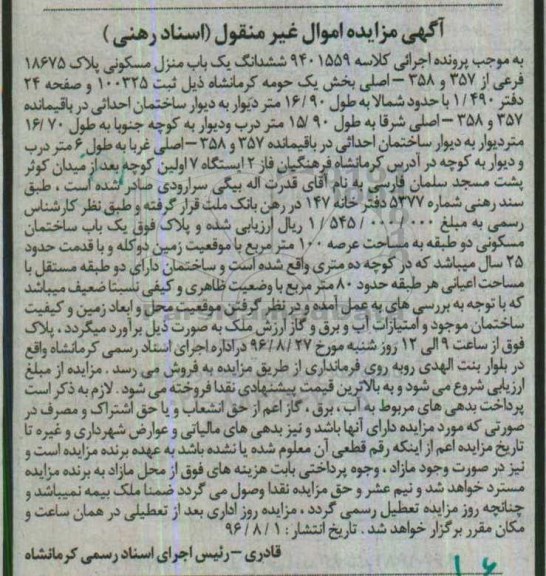 آگهی مزایده اموال غیر منقول (اسناد رهنی)
به موجب پرونده اجرائی کلاسه ۹۴۰۱۵۵۹ ششدانگ یک باب منزل مسکونی پلاک ۱۸۶۷۵
فرعی از ۳۵۷ و ۳۵۸ – اصلی بخش یک حومه کرمانشاه ذیل ثبت ۱۰۰۳۲۵ و صفحه ۲۴
دفتر ۱/۴۹۰ با حدود شمالا به طول ۱۶/۹۰ متر دیوار به دیوار ساختمان احداثی در باقیمانده
۳۵۷ و ۳۵۸ – اصلی شرقا به طول ۱۵/۹۰ متر درب ودیوار به کوچه جنوبا به طول ۱۶/۷۰
متردیوار به دیوار ساختمان احداثی در باقیمانده ۳۵۷ و ۳۵۸ – اصلی غربا به طول ۶ متر درب
و دیوار به کوچه در آدرس کرمانشاه فرهنگیان فاز ۲ ایستگاه ۷ اولین کوچه بعد از میدان کوثر
پشت مسجد سلمان فارسی به نام آقای قدرت اله بیگی سرارودی صادر شده است ، طبق
سند رهنی شماره ۵۳۷۷ دفتر خانه ۱۴۷ در رهن بانک ملت قرار گرفته و طبق نظر کارشناس
رسمی به مبلغ ۱/۵۴۵/۰۰۰/۰۰۰ ریال ارزیابی شده و پلاک فوق یک باب ساختمان
مسکونی دو طبقه به مساحت عرصه ۱۰۰ متر مربع با موقعیت زمین دوکله و با قدمت حدود
۲۵ سال میباشد که در کوچه ده متری واقع شده است و ساختمان دارای دو طبقه مستقل با
مساحت اعیانی هر طبقه حدود ۸۰ متر مربع با وضعیت ظاهری و کیفی نسبتا ضعیف میباشد
که با توجه به بررسی های به عمل آمده و در نظر گرفتن موقعیت محل و ابعاد زمین و کیفیت
ساختمان موجود و امتیازات آب و برق و گاز ارزش ملک به صورت ذیل برآورد میگردد ، پلاک
فوق از ساعت ۹ الی ۱۲ روز شنبه مورخ ۹۶/۸/۲۷ دراداره اجرای اسناد رسمی کرمانشاه واقع
در بلوار بنت الهدی روبه روی فرمانداری از طریق مزایده به فروش می رسد . مزایده از مبلغ
ارزیابی شروع می شود و به بالاترین قیمت پیشنهادی نقدا فروخته می شود . لازم به ذکر است
پرداخت بدهی های مربوط به آب ، برق ، گاز اعم از حق انشعاب و یا حق اشتراک و مصرف در
صورتی که مورد مزایده دارای آنها باشد و نیز بدهی های مالیاتی و عوارض شهرداری و غیره تا
تاریخ مزایده اعم از اینکه رقم قطعی آن معلوم شده یا نشده باشد به عهده برنده مزایده است و
نیز در صورت وجود مازاد ، وجوه پرداختی بابت هزینه های فوق از محل مازاد به برنده مزایده
مسترد خواهد شد و نیم عشر و حق مزایده نقدا وصول می گردد ضمنا ملک بیمه نمیباشد و
چنانچه روز مزایده تعطیل رسمی گردد ، مزایده روز اداری بعد از تعطیلی در همان ساعت و
مکان مقرر برگزار خواهد شد . تاریخ انتشار : ۹۶/۸/۱
قادری – رئیس اجرای اسناد رسمی کرمانشاه